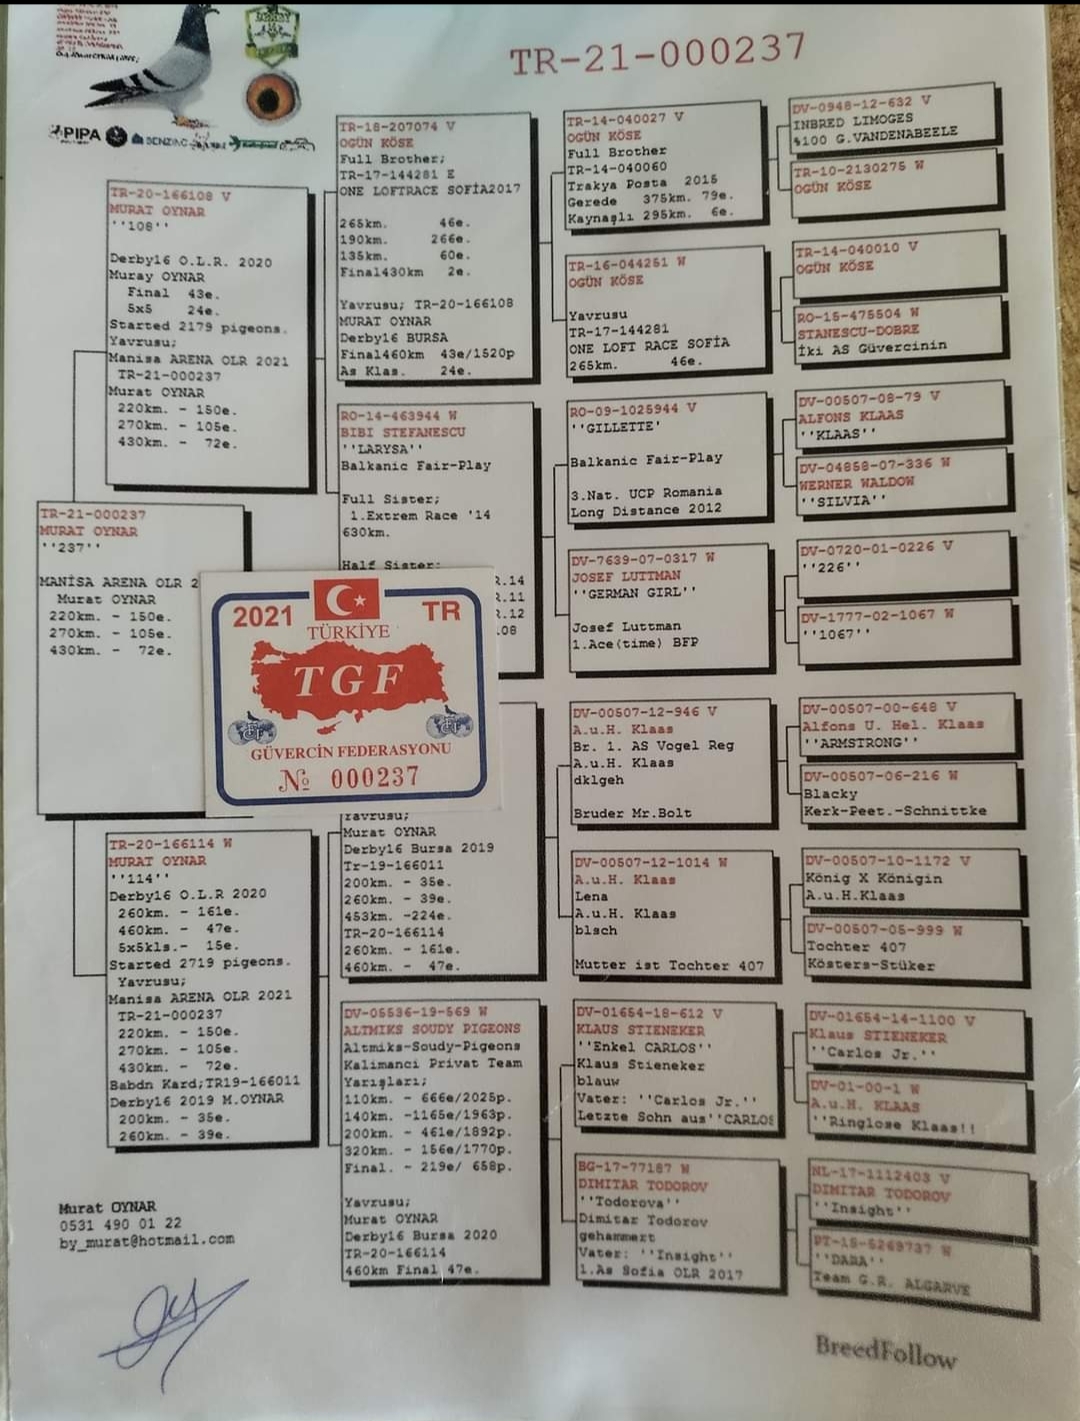 TR-21-000237
PIPA
BENZING
TR-21-000237
MURAT OYNAR
''237''
MANİSA ARENA OLR 2
Murat OYNAR
220km. - 150e.
270km. - 105e.
430km. - 72e.
TR-20-166108 V
MURAT OYNAR
''108''
Derby16 O.L.R. 2020
Muray OYNAR
Final 43e.
5x5 24e.
Started 2179 pigeons.
Yavrusu;
Manisa ARENA OLR 2021
TR-21-000237
Murat OYNAR
220km. - 150e.
270km. - 105e.
430km. - 72e.
TR-20-166114 W
MURAT OYNAR
''114''
Derby16 O.L.R 2020
260km. - 161e.
460km. - 47e.
5x5kls.- 15e.
Started 2719 pigeons.
Yavrusu;
Manisa ARENA OLR 2021
TR-21-000237
220km. - 150e.
270km. - 105e.
430km. - 72e.
Babdn Kard;TR19-166011
Derby16 2019 M.OYNAR
200km. - 35e.
260km. - 39e.
TR-18-207074 V
OGÜN KÖSE
Full Brother;
TR-17-144281 E
ONE LOFTRACE SOFİA2017
265km. 46e.
190km. 266e.
135km. 60e.
Final430km 2e.
Yavrusu; TR-20-166108
MURAT OYNAR
Derby16 BURSA
Final460km 43e/1520p
As Klas. 24e.
RO-14-463944 W
BIBI STEFANESCU
''LARYSA''
Balkanic Fair-Play
Full Sister;
1.Extrem Race '14
630km.
Half Sister:
R.14
R.11
R.12
.08
2021 TR
TÜRKİYE
TGF
GÜVERCİN FEDERASYONU
№ 000237
Yavrusu;
Murat OYNAR
Derby16 Bursa 2019
Tr-19-166011
200km. - 35e.
260km. - 39e.
453km. -224e.
TR-20-166114
260km. - 161e.
460km. - 47e.
DV-05536-19-569 W
ALTMIKS SOUDY PIGEONS
Altmiks-Soudy-Pigeons
Kalimanci Privat Team
Yarışları;
110km. - 666e/2025p.
140km. -1165e/1963p.
200km. - 461e/1892p.
320km. - 156e/1770p.
Final. - 219e/ 658p.
Yavrusu;
Murat OYNAR
Derby16 Bursa 2020
TR-20-166114
460km Final 47e.
TR-14-040027 V
OGÜN KÖSE
Full Brother
TR-14-040060
Trakya Posta 2015
Gerede 375km. 79e.
Kaynaşlı 295km. 6e.
TR-16-044251 W
OGÜN KÖSE
Yavrusu
TR-17-144281
ONE LOFT RACE SOFİA
265km. 46e.
RO-09-1025944 V
''GILLETTE'
Balkanic Fair-Play
3.Nat. UCP Romania
Long Distance 2012
DV-7639-07-0317 W
JOSEF LUTTMAN
''GERMAN GIRL''
Josef Luttman
1.Ace(time) BFP
DV-00507-12-946 V
A.u.H. Klaas
Br. 1. AS Vogel Reg
A.u.H. Klaas
dklgeh
Bruder Mr.Bolt
DV-00507-12-1014 W
A.u.H. Klaas
Lena
A.u.H. Klaas
blsch
Mutter ist Tochter 407
DV-01654-18-612 V
KLAUS STIENEKER
''Enkel CARLOS''
Klaus Stieneker
blauw
Vater: ''Carlos Jr.''
Letzte Sohn aus''CARLOS
BG-17-77187 W
DIMITAR TODOROV
''Todorova''
Dimitar Todorov
gehammert
Vater: ''Insight''
1.As Sofia OLR 2017
DV-0948-12-632 V
INBRED LIMOGES
%100 G.VANDENABEELE
TR-10-2130275 W
OGÜN KÖSE
TR-14-040010 V
OGÜN KÖSE
RO-15-475504 W
STANESCU-DOBRE
İki AS Güvercinin
DV-00507-08-79 V
ALFONS KLAAS
''KLAAS''
DV-04858-07-336 W
WERNER WALDOW
''SILVIA''
DV-0720-01-0226 V
''226''
DV-1777-02-1067 W
''1067''
DV-00507-00-648 V
Alfons U. Hel. Klaas
''ARMSTRONG''
DV-00507-06-216 W
Blacky
Kerk-Peet.-Schnittke
DV-00507-10-1172 V
König X Königin
A.u.H.Klaas
DV-00507-05-999 W
Tochter 407
Kösters-Stüker
DV-01654-14-1100 V
Klaus STIENEKER
''Carlos Jr.''
DV-01-00-1 W
A.u.H. KLAAS
''Ringlose Klaas!!
NL-17-1112403 V
DIMITAR TODOROV
''Insight''
PT-15-5269737 W
''DARA''
Team G.R. ALGARVE
Murat OYNAR
0531 490 01 22
by_murat@hotmail.com
BreedFollow